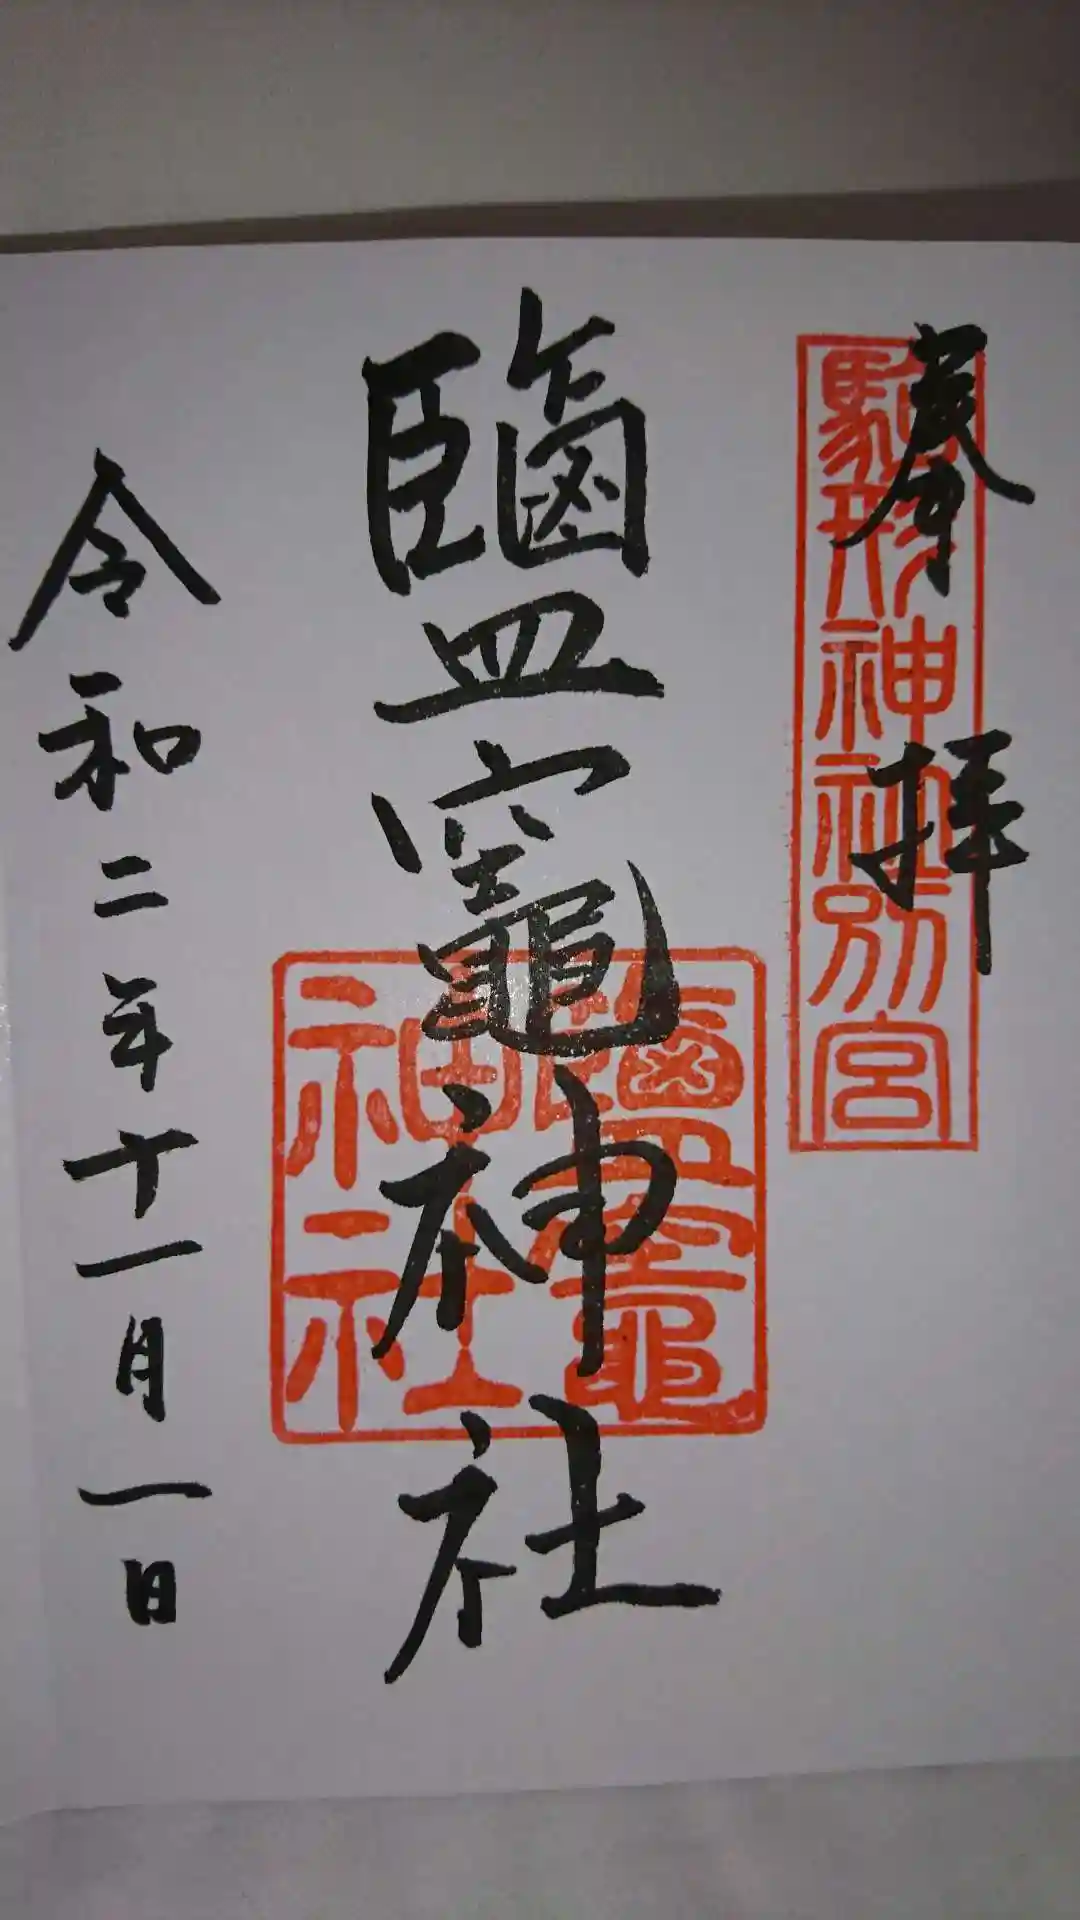 奉拝
駒形神社別宮
鹽竈神社
鹽竈神社
令和二年十一月一日